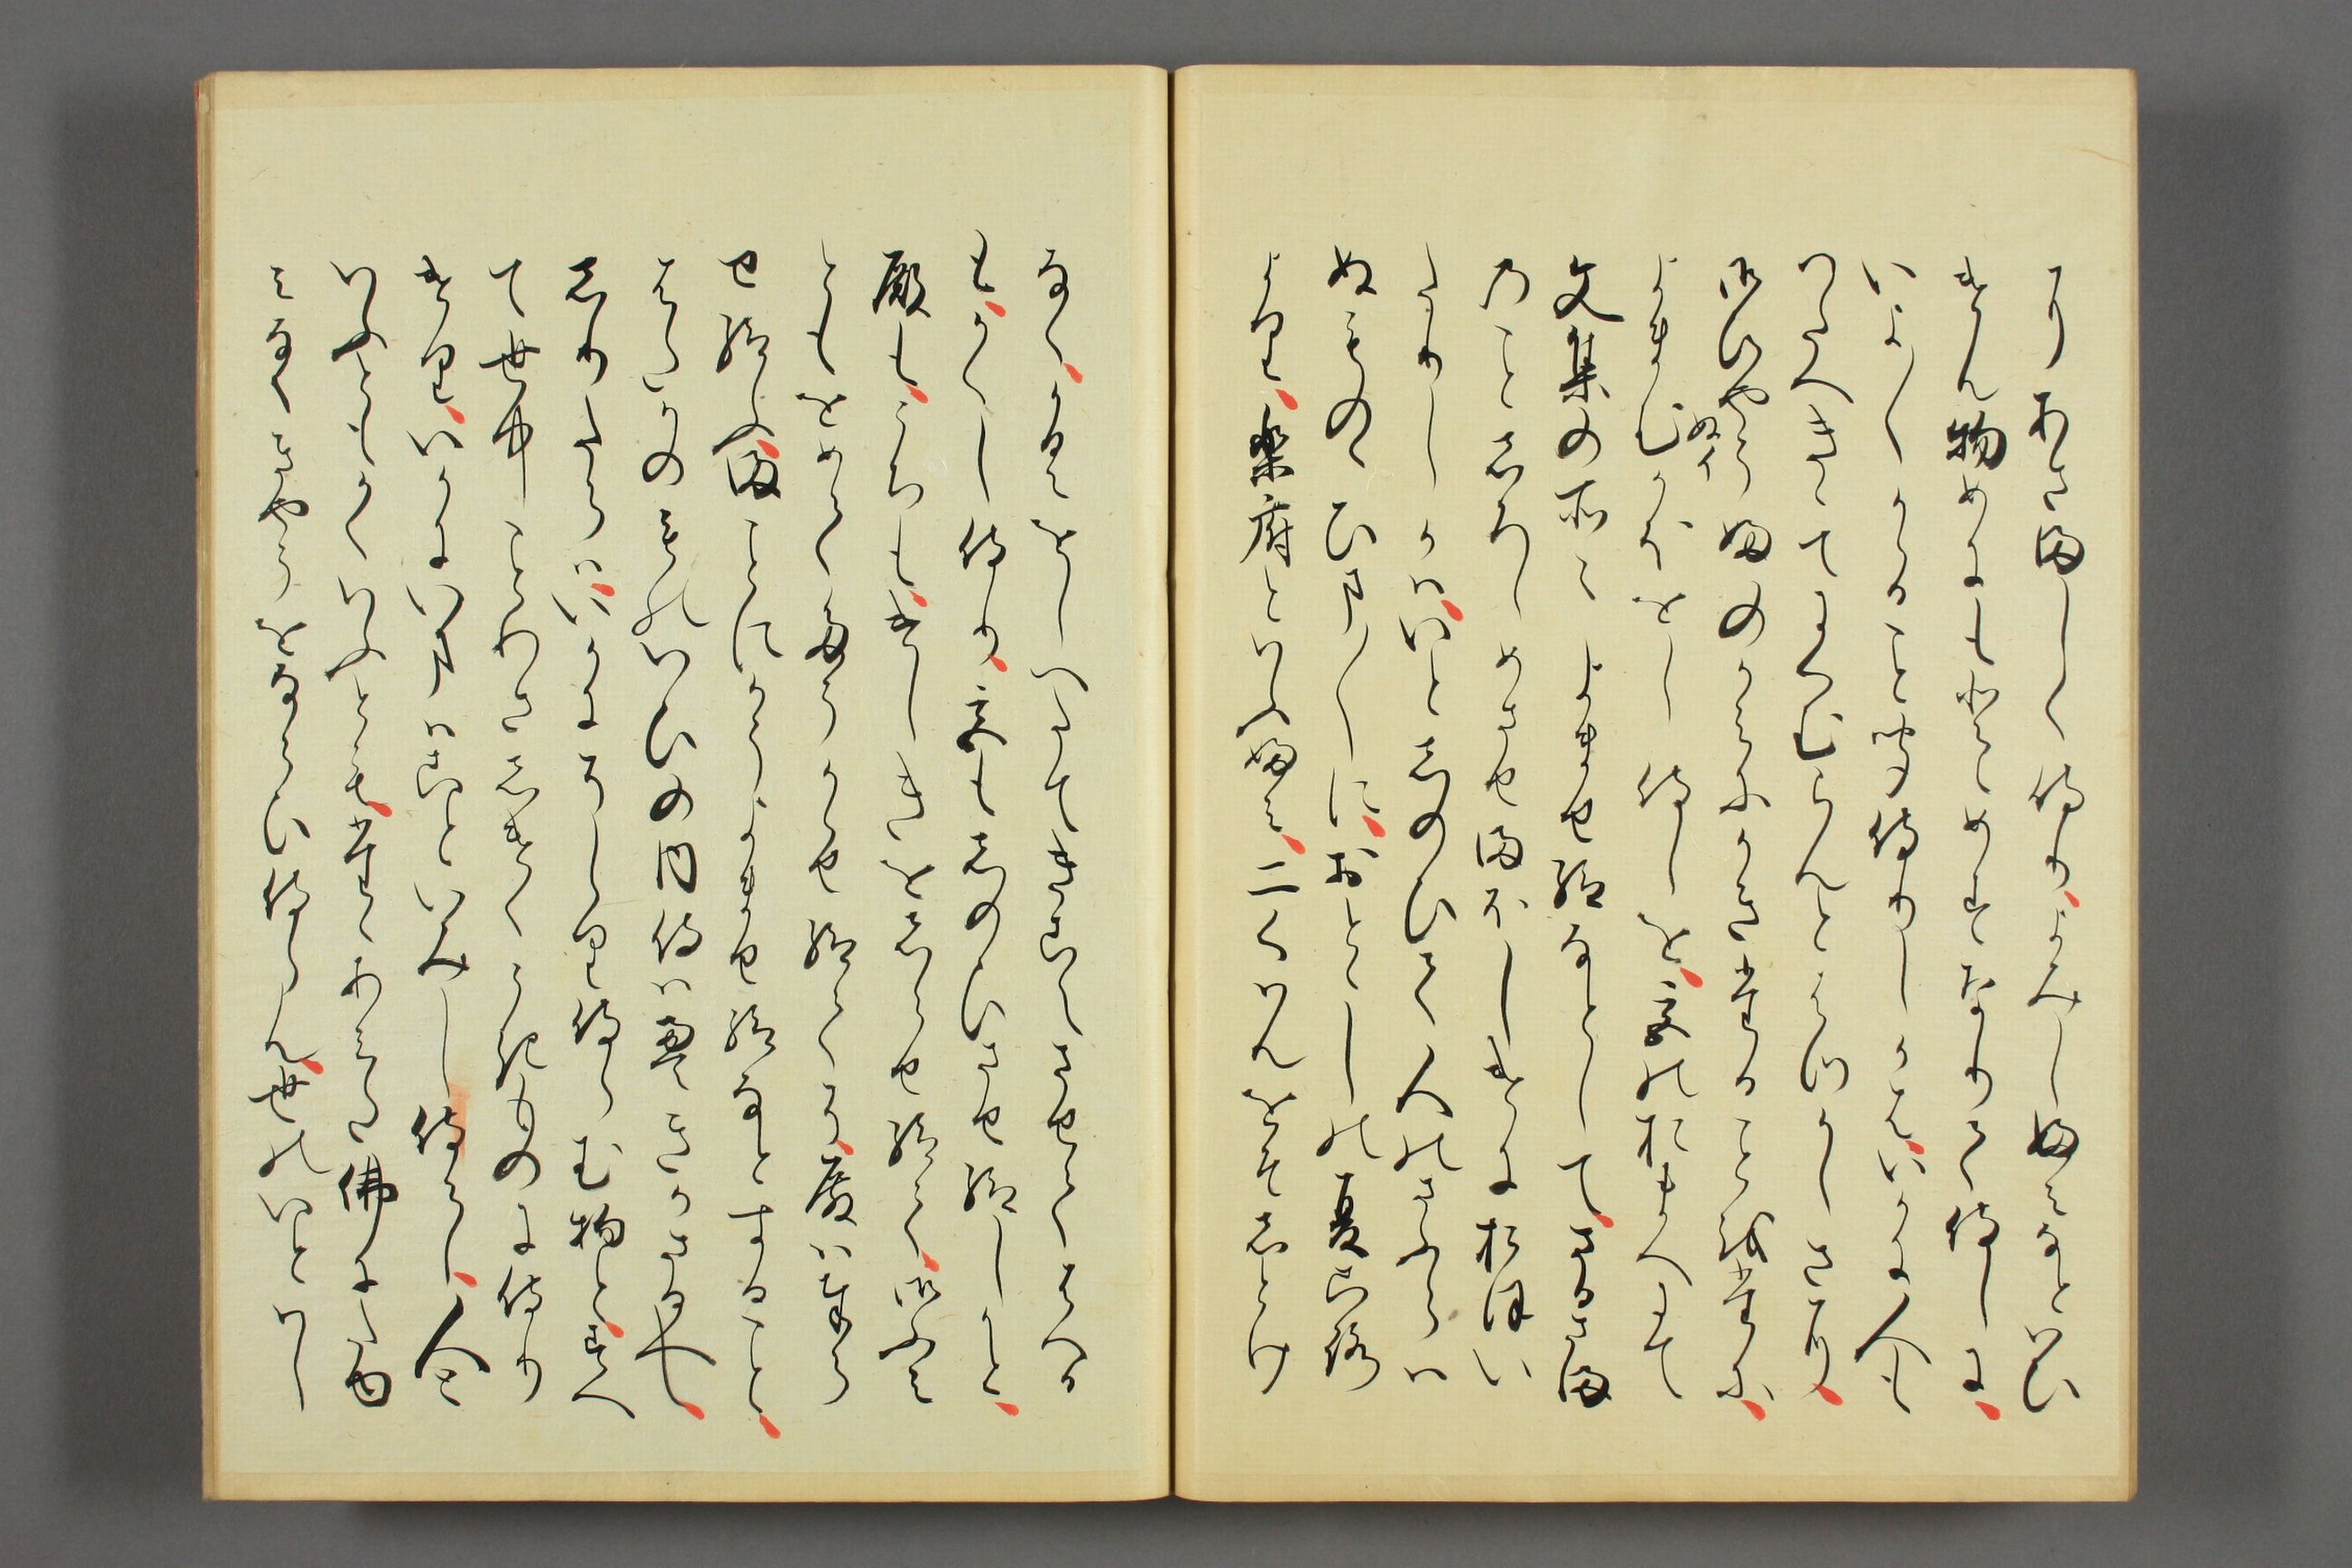 てあさましく侍りよみし文なといひ
けん物めにもとゝめすなりて侍しに
いよ〱かゝること聞侍りしかはいかに人も
つたへきゝてにくむらんとはつかしさに
御ひやうふのかみにかきたることをたに
よまむかほをし侍しを宮の御まへにて
ぬイ
文集の所々よませ給なとしてさるさま
のことしろしめさせまほしけにおほい
たりしかはいとしのひて人のさふらは
ぬものゝひま〱におとゝしの夏比
より楽府といふ文二くわんをそしとけ
なくかうをしへたてきこえさせて侍る
もかくし侍り宮もしのひさせ給しかと
殿もうちもけしきをしらせ給て御ふみ
ともをめてたうかゝせ給てそ殿は奉ら
せ給ふまことにかうよませ給なとすること
はたかのものいひの内侍はえきかさるへし
しりたらはいかにそしり侍らむ物とすへ
て世中ことわさしけくうきものに侍り
けりいかにいまはこといみし侍らし人と
いふともかくいふともたゝあみた佛にたゆ
みなくきやうをならひ侍らん世のいとはし